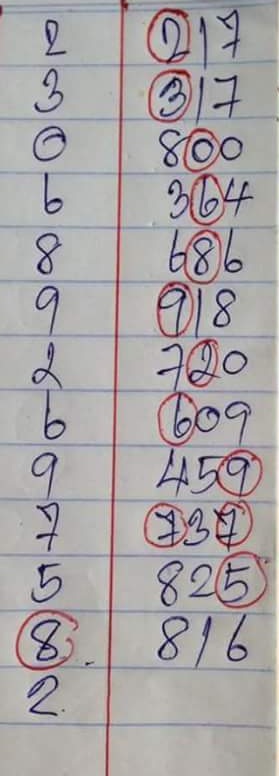 2 217
3 317
0 800
6 364
8 686
9 918
2 720
6 609
9 459
7 737
5 825
8 816
2.